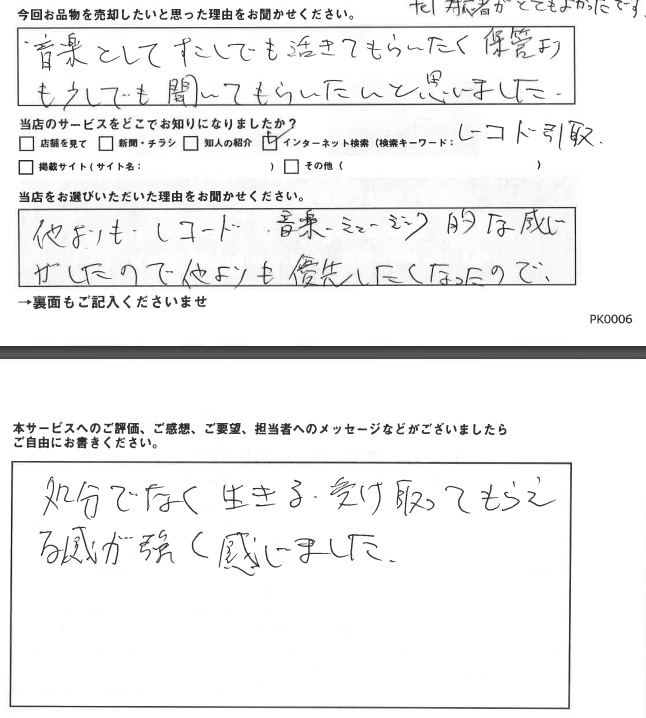 tel 対応者がとてもよかったです。
今回お品物を売却したいと思った理由をお聞かせください。
音楽としてすこしでも活きてもらいたく保管より
も少しでも聞いてもらいたいと思いました.
当店のサービスをどこでお知りになりましたか?
店舗を見て 新聞・チラシ 知人の紹介 インターネット検索(検索キーワード: レコード引取.
掲載サイト(サイト名: ) その他( )
当店をお選びいただいた理由をお聞かせください。
他よりも.レコード.音楽.ミュージック的な感じ
がしたので他よりも優先したくなったので、
→裏面もご記入くださいませ
PK0006
本サービスへのご評価、ご感想、ご要望、担当者へのメッセージなどがございましたら
ご自由にお書きください。
処分でなく生きる.受け取ってもらえ
る感が強く感じました.